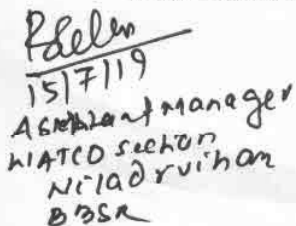 15/7/19
Assistant Manager
WATCO Section
Niladrvihar
BBSR